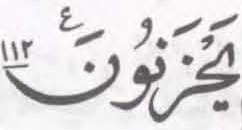 يَحزَنُونَ ع ١١٢